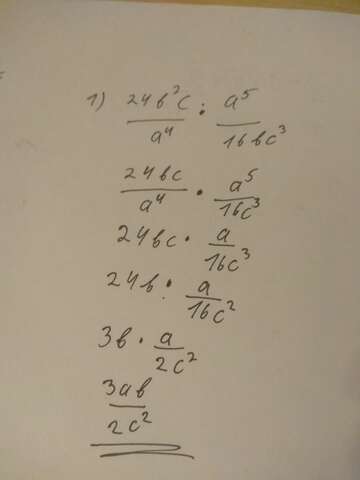 1) 24в²c/a⁴ : a⁵/16вc³
24вc/a⁴ · a⁵/16c³
24вc · a/16c³
24в · a/16c²
3в · a/2c²
3aв/2c²